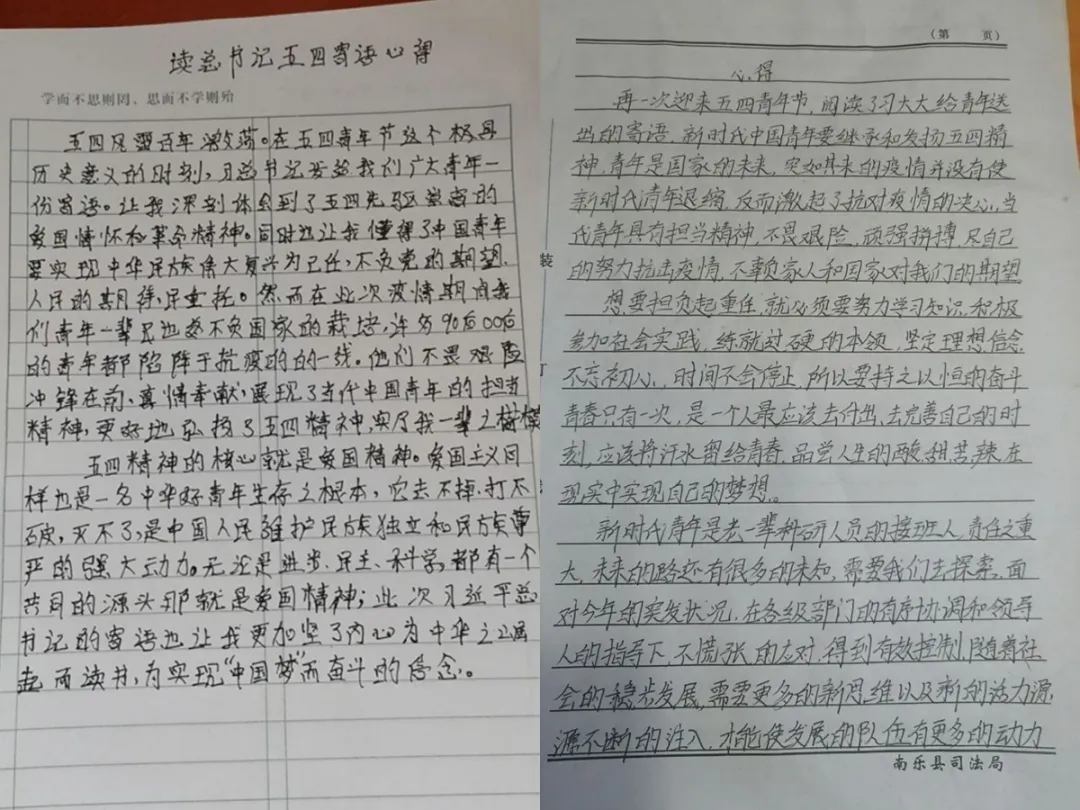 读总书记五四寄语心得
学而不思则罔、思而不学则殆
五四风云百年激荡。在五四青年节这个极具
历史意义的时刻,习总书记寄给我们广大青年一
份寄语。让我深刻体会到了五四先驱崇高的
爱国情怀和革命精神。同时也让我懂得了中国青年
要实现中华民族伟大复兴为已任,不负党的期望、
人民的期待,民重托。然而在此次疫情期间我
们青年一辈只也不负国家的栽培,许多90后00后
的青年都陷阵于抗疫的的一线。他们不畏艰险
冲锋在前、真情奉献,展现了当代中国青年的担当
精神,更好地弘扬了五四精神,实乃我一辈之楷模
五四精神的核心就是爱国精神。爱国主义同
样也是一名中华好青年生存之根本,它去不掉,打不
破,灭不了,是中国人民维护民族独立和民族尊
严的强大动力。无论是进步、民主、科学,都有一个
共同的源头那就是爱国精神;此次习近平总
书记的寄语也让我更加坚了内心为中华之崛
起而读书,为实现“中国梦”而奋斗的信念。
(第 页)
心得
再一次迎来五四青年节,阅读了习大大给青年送
出的寄语,新时代中国青年要继承和发扬五四精
神,青年是国家的未来,突如其来的疫情并没有使
新时代青年退缩,反而激起了抗对疫情的决心,当
代青年具有担当精神,不畏艰险,顽强拼搏,尽自己
的努力抗击疫情,不辜负家人和国家对我们的期望
想要担负起重任,就必须要努力学习知识,积极
参加社会实践,练就过硬的本领,坚定理想信念,
不忘初心,时间不会停止,所以要持之以恒的奋斗
青春只有一次,是一个人最应该去付出,去完善自己的时
刻,应该将汗水留给青春,品尝人生的酸,甜,苦,辣,在
现实中实现自己的梦想。
新时代青年是老一辈科研人员的接班人,责任之重
大,未来的路还有很多的未知,需要我们去探索。面
对今年的突发状况,在各级部门的有序协调和领导
人的指导下,不慌张的应对,得到有效控制,随着社
会的稳步发展,需要更多的新思维以及新的活力源
源不断的注入,才能使发展的队伍有更多的动力
装
订
南乐县司法局